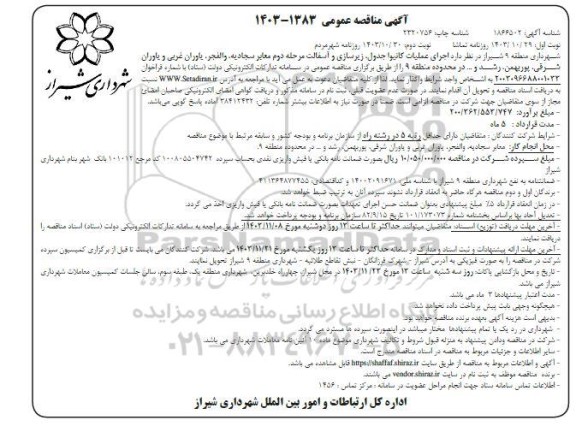 آگهی مناقصه عمومی ۱۳۸۳-۱۴۰۳
شناسه آگهی: ۱۸۶۶۵۰۲ شناسه چاپ: ۲۳۲۰۷۵۶
نوبت اول: ۲۹ /۱۰ /۱۴۰۳ روزنامه تماشا نوبت دوم: ۱۴۰۳/۱۰/۳۰ روزنامه شهرمردم
شهرداری شیراز
شهرداری منطقه ۹ شیراز در نظر دارد اجرای عملیات کانیوا جدول، زیرسازی و آسفالت مرحله دوم معابر سجادیه، والفجر، یاوران غربی و یاوران
شرقی، پوربهمن، رشد و .. در محدوده منطقه ۹ را از طریق برگزاری مناقصه عمومی در سامانه تدارکات الکترونیکی دولت (ستاد) با شماره فراخوان
۲۰۰۳۰۹۶۶۸۸۰۰۱۰۳۲ به اشخاص واجد شرایط واگذار نماید. لذا از کلیه متقاضیان دعوت به عمل می آید با مراجعه به آدرس WWW.Setadiran.ir نسبت
به دریافت اسناد مناقصه و تحویل آن اقدام نمایند. در صورت عدم عضویت قبلی، ثبت نام در سامانه مذکور و دریافت گواهی امضای الکترونیکی صاحبان امضای
مجاز از سوی متقاضیان جهت شرکت در مناقصه الزامی است. ضمنا در صورت نیاز به اطلاعات بیشتر شماره تلفن: ۳۸۴۱۲۴۳۲ آماده پاسخ گویی می‌باشد.
- مبلغ برآورد: ۲۰۰/۳۶۲/۵۵۳/۷۴۷
- مدت قرارداد: ۵ ماه
- شرایط شرکت کنندگان : متقاضیان دارای حداقل رتبه ۵ در رشته راه از سازمان برنامه و بودجه کشور و سابقه مرتبط با موضوع مناقصه
- محل انجام کار: معابر سجادیه، والفجر، یاوران غربی و یاوران شرقی، پوربهمن، رشد و ... در محدوده منطقه ۹.
- مبلغ سپرده شرکت در مناقصه ۱۰/۰۵۰/۰۰۰/۰۰۰ ریال بصورت ضمانت نامه بانکی یا فیش واریزی نقدی بحساب سپرده ۱۰۰۸۰۵۵۰۴۷۴۲ کد مرجع ۱۰۰۱۰۱۲ بانک شهر بنام شهرداری شیراز
- ضمانتنامه به نفع شهرداری منطقه ۹ شیراز با شناسه ملی ۱۴۰۰۲۰۹۱۶۷۱ و کداقتصادی ۴۱۱۳۶۴۸۷۷۴۵۵ می باشد.
- برندگان اول و دوم مناقصه هرگاه حاضر به انعقاد قرارداد نشوند سپرده آنان به ترتیب ضبط خواهد شد.
- در زمان انعقاد قرارداد ۵٪ مبلغ پیشنهادی بعنوان ضمانت حسن اجرای تعهدات بصورت ضمانت نامه بانکی یا فیش واریزی اخذ می گردد.
- تعدیل آحاد بها براساس بخشنامه شماره ۱۰۱/۱۷۳۰۷۳ تاریخ ۸۲/۹/۱۵ سازمان برنامه و بودجه پرداخت خواهد شد.
- آخرین مهلت دریافت (توزیع) اسناد: متقاضیان میتوانند حداکثر تا ساعت ۱۳ روز دوشنبه مورخ ۱۴۰۳/۱۱/۰۸ از طریق مراجعه به سامانه تدارکات الکترونیکی دولت (ستاد) اسناد مناقصه را
دریافت نمایند.
- آخرین مهلت ارائه پیشنهادات و ثبت اسناد و مدارک در سامانه حداکثر تا ساعت ۱۳ روز یکشنبه مورخ ۱۴۰۳/۱۱/۲۱ می باشد. شرکت کنندگان می بایست قبل از برگزاری کمیسیون سپرده
شرکت در مناقصه را به صورت فیزیکی به آدرس شیراز - شهرک فرزانگان - نبش تقاطع طلائیه - شهرداری منطقه ۹ شیراز تحویل نمایند.
- تاریخ و محل بازگشایی پاکات: روز سه شنبه ساعت ۱۳ مورخ ۱۴۰۳/۱۱/۲۳ در محل شیراز، چهارراه خلدبرین، شهرداری منطقه یک، طبقه سوم، سالن جلسات کمیسیون معاملات شهرداری
شیراز می باشد.
- مدت اعتبار پیشنهادها ۳ ماه می باشد.
- هیچگونه وجهی بابت پیش پرداخت داده نخواهد شد.
- بدیهی است هزینه آگهی بعهده برنده مناقصه خواهد بود.
- شهرداری در رد یک یا تمام پیشنهادها مختار میباشد در اینصورت سپرده ها مسترد می گردد.
- شرکت در مناقصه ودادن پیشنهاد به منزله قبول شروط و تکالیف شهرداری موضوع ماده ۱۰ آئین نامه معاملات شهرداری می باشد.
- سایر اطلاعات و جزئیات مربوط به مناقصه در اسناد مناقصه مندرج است.
- اطلاعات مربوط به آگهی مناقصه از طریق سایت https://shaffaf.shiraz.ir قابل مشاهده می باشد.
- برنده مناقصه موظف به ثبت نام در سایت vendor.shiraz.ir می باشد.
- اطلاعات تماس سامانه ستاد جهت انجام مراحل عضویت در سامانه : مرکز تماس : ۱۴۵۶
اداره کل ارتباطات و امور بین الملل شهرداری شیراز
پایگاه اطلاع رسانی مناقصه و مزایده
۰۲۱-۸۸۳۴۹۶۷۰